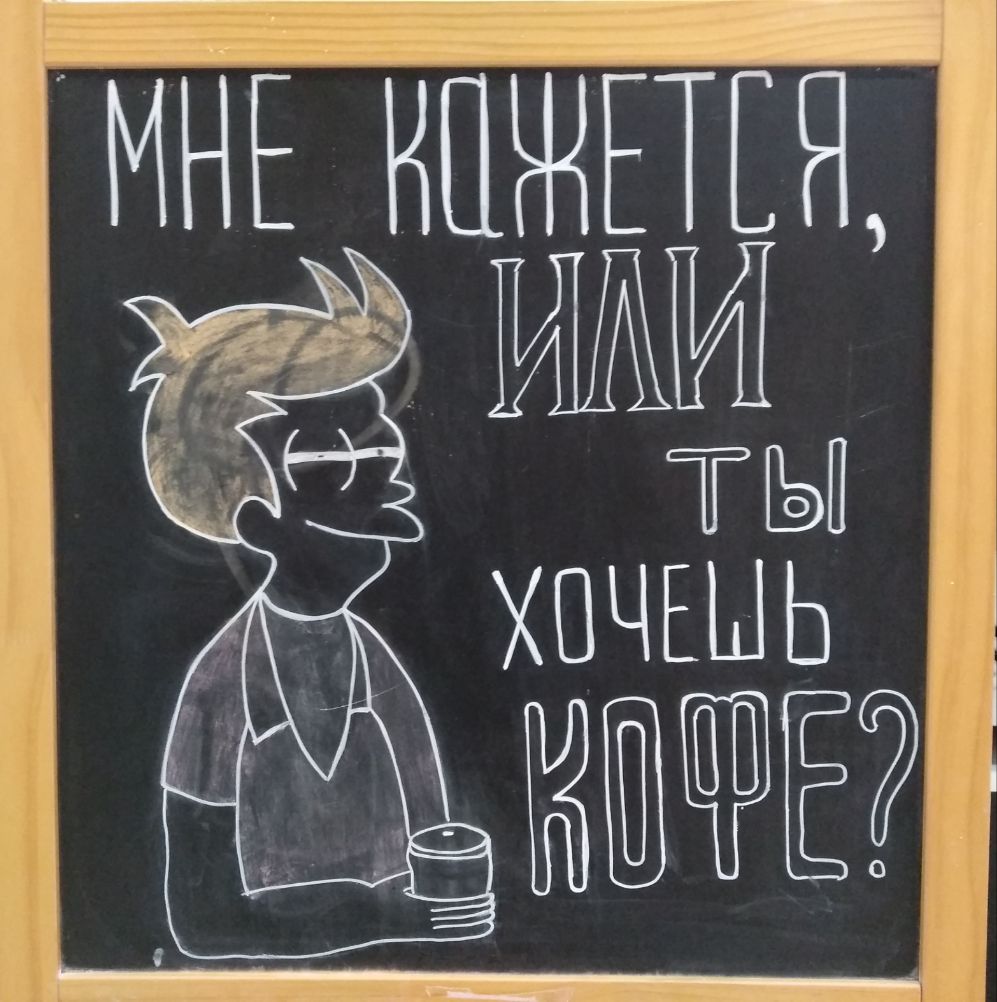 МНЕ КАЖЕТСЯ,
ИЛИ
ТЫ
ХОЧЕШЬ
КОФЕ?